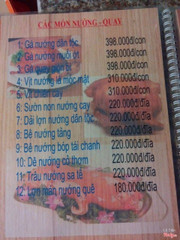 CÁC MÓN NƯỚNG - QUAY
1: Gà nướng dân tộc 398.000đ/con
2: Gà nướng nuột gt 398.000đ/con
3: Gà quay 398.000đ/con
4: Vịt nướng lá mộc mật 310.000đ/con
5: Vịt cháy cay 310.000đ/con
6: Sườn nọn nướng cay 220.000đ/đĩa
7: Dải lợn nướng dân tộc 220.000đ/đĩa
8: Bê nướng tảng 220.000đ/đĩa
9: Bê nướng bóp tái chanh 220.000đ/đĩa
10: Dê nướng cỏ thơm 220.000đ/đĩa
11: Trâu nướng sa tế 220.000đ/đĩa
12: Lợn mán nướng quế 180.000đ/đĩa